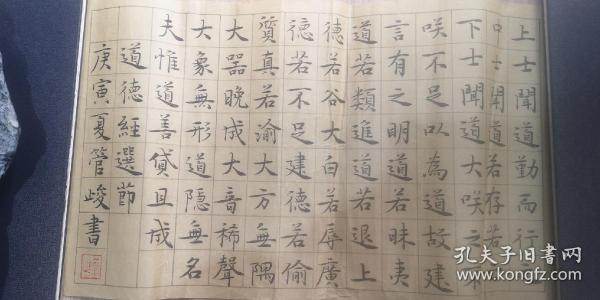 上士聞道勤而行
士聞道若存若
下士聞道大咲之不
咲不足以為道故建
言有之明道若昧夷
道若類進道若退上
德若谷大白若辱廣
德若不足建德若偷
質真若渝大方無隅
大器晚成大音稀聲
大象無形道隱無名
夫惟道善貸且成
道德經選節
庚寅夏管峻書
孔夫子旧书网
www.kongfz.com